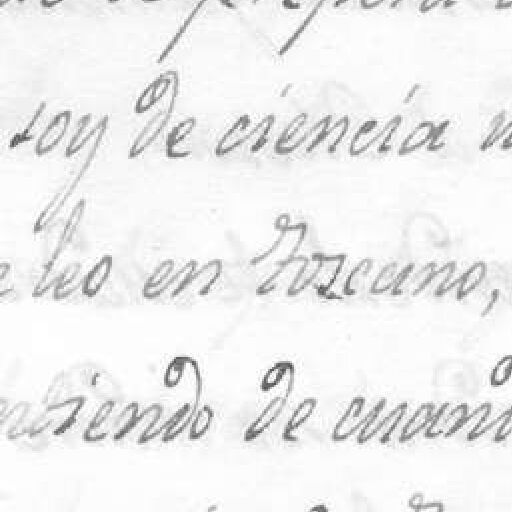 soy de ciencia
leo en Toscano,
entiendo de cuant